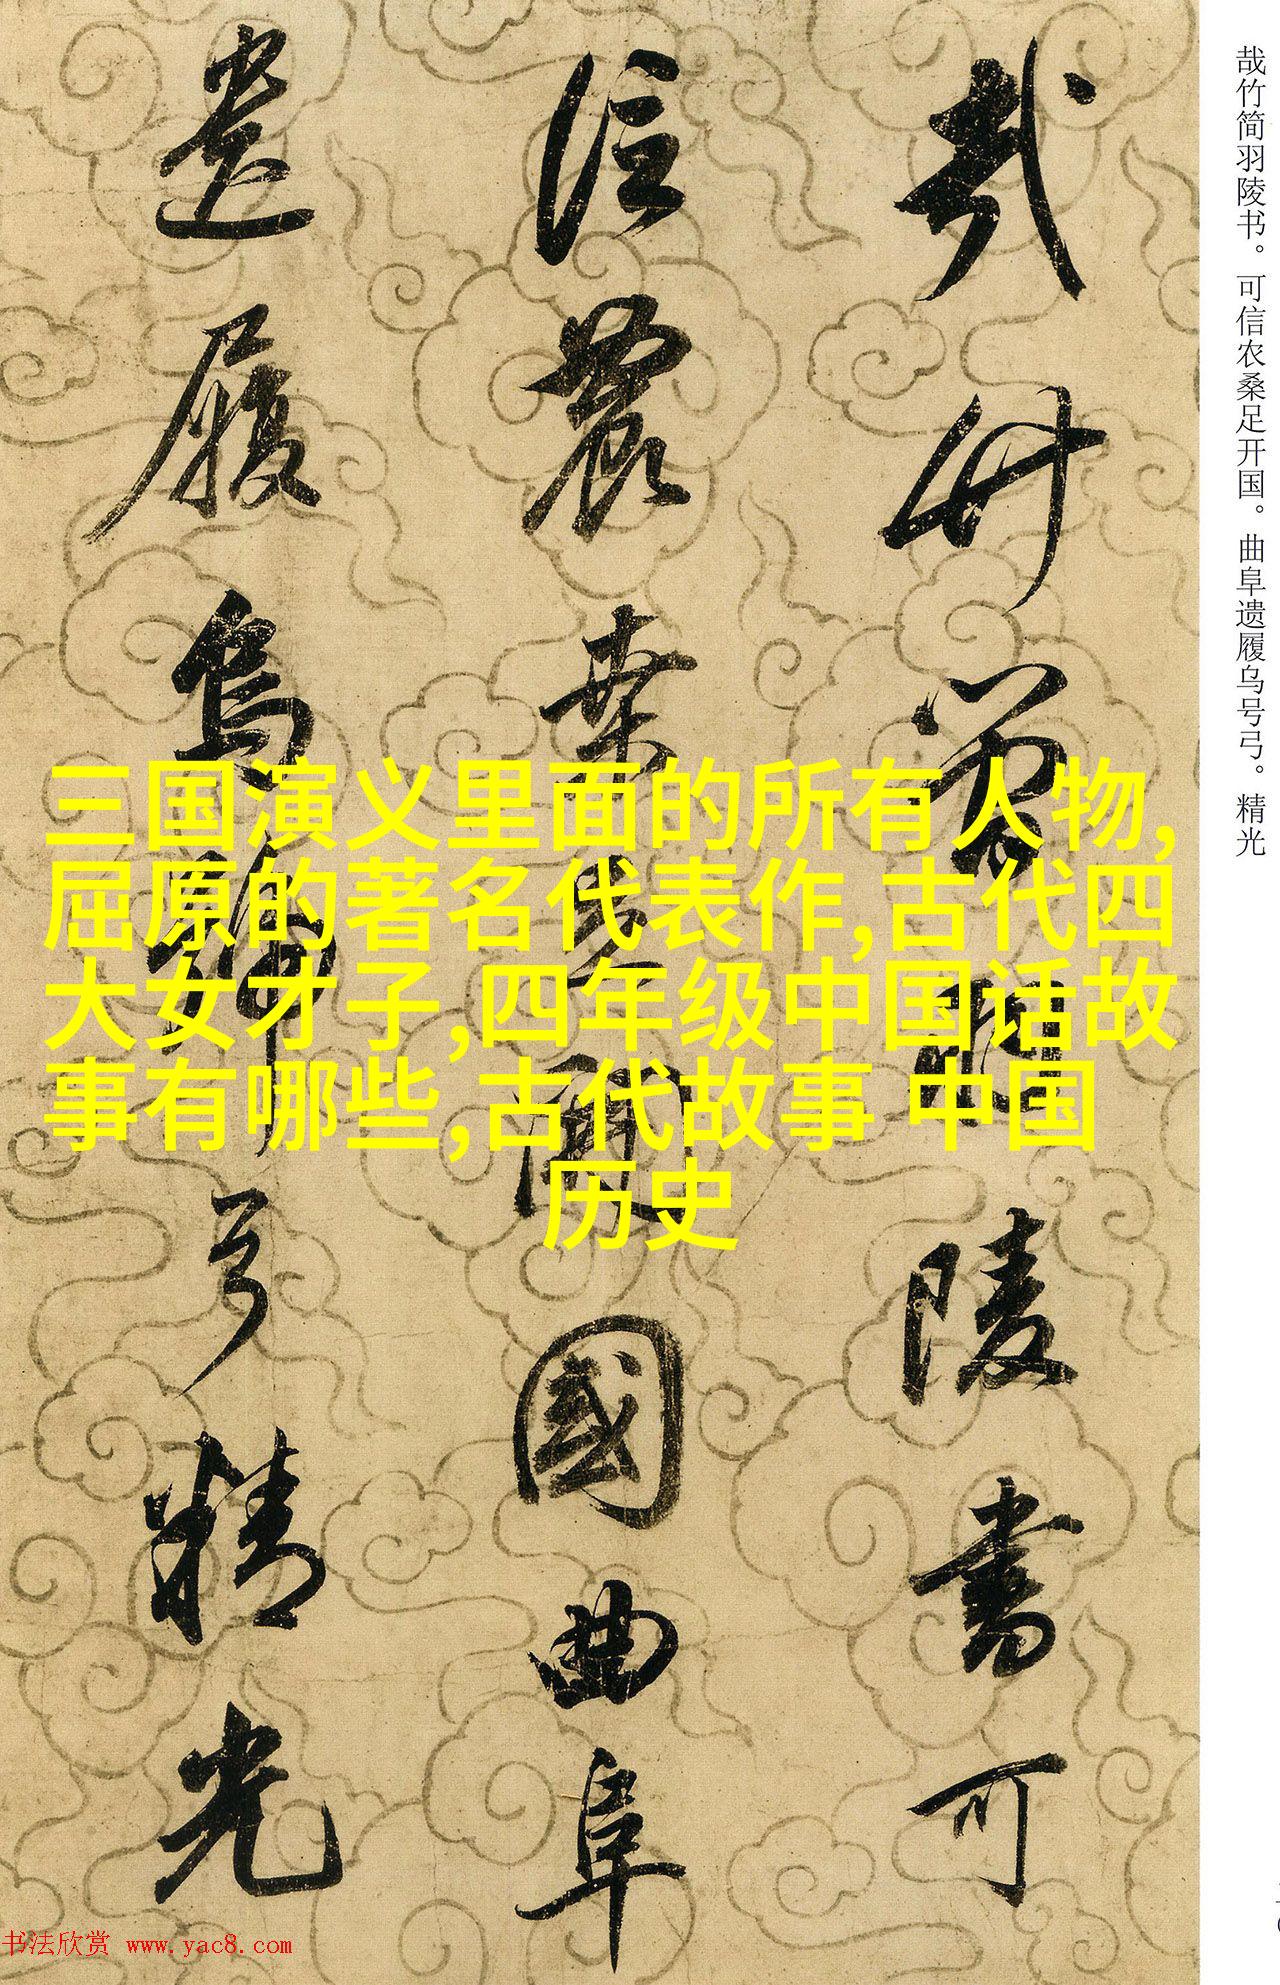 哉竹简羽陵书。可信农桑足开国。曲阜遗履乌号弓。精光
哉竹簡羽陵書可
信農桑足開國曲阜
遺履烏號弓精光
三国演义里面的所有人物,
屈原的著名代表作,古代四
大女才子,四年级中国话故
事有哪些,古代故事 中国
历史
书法欣赏 www.yac8.com